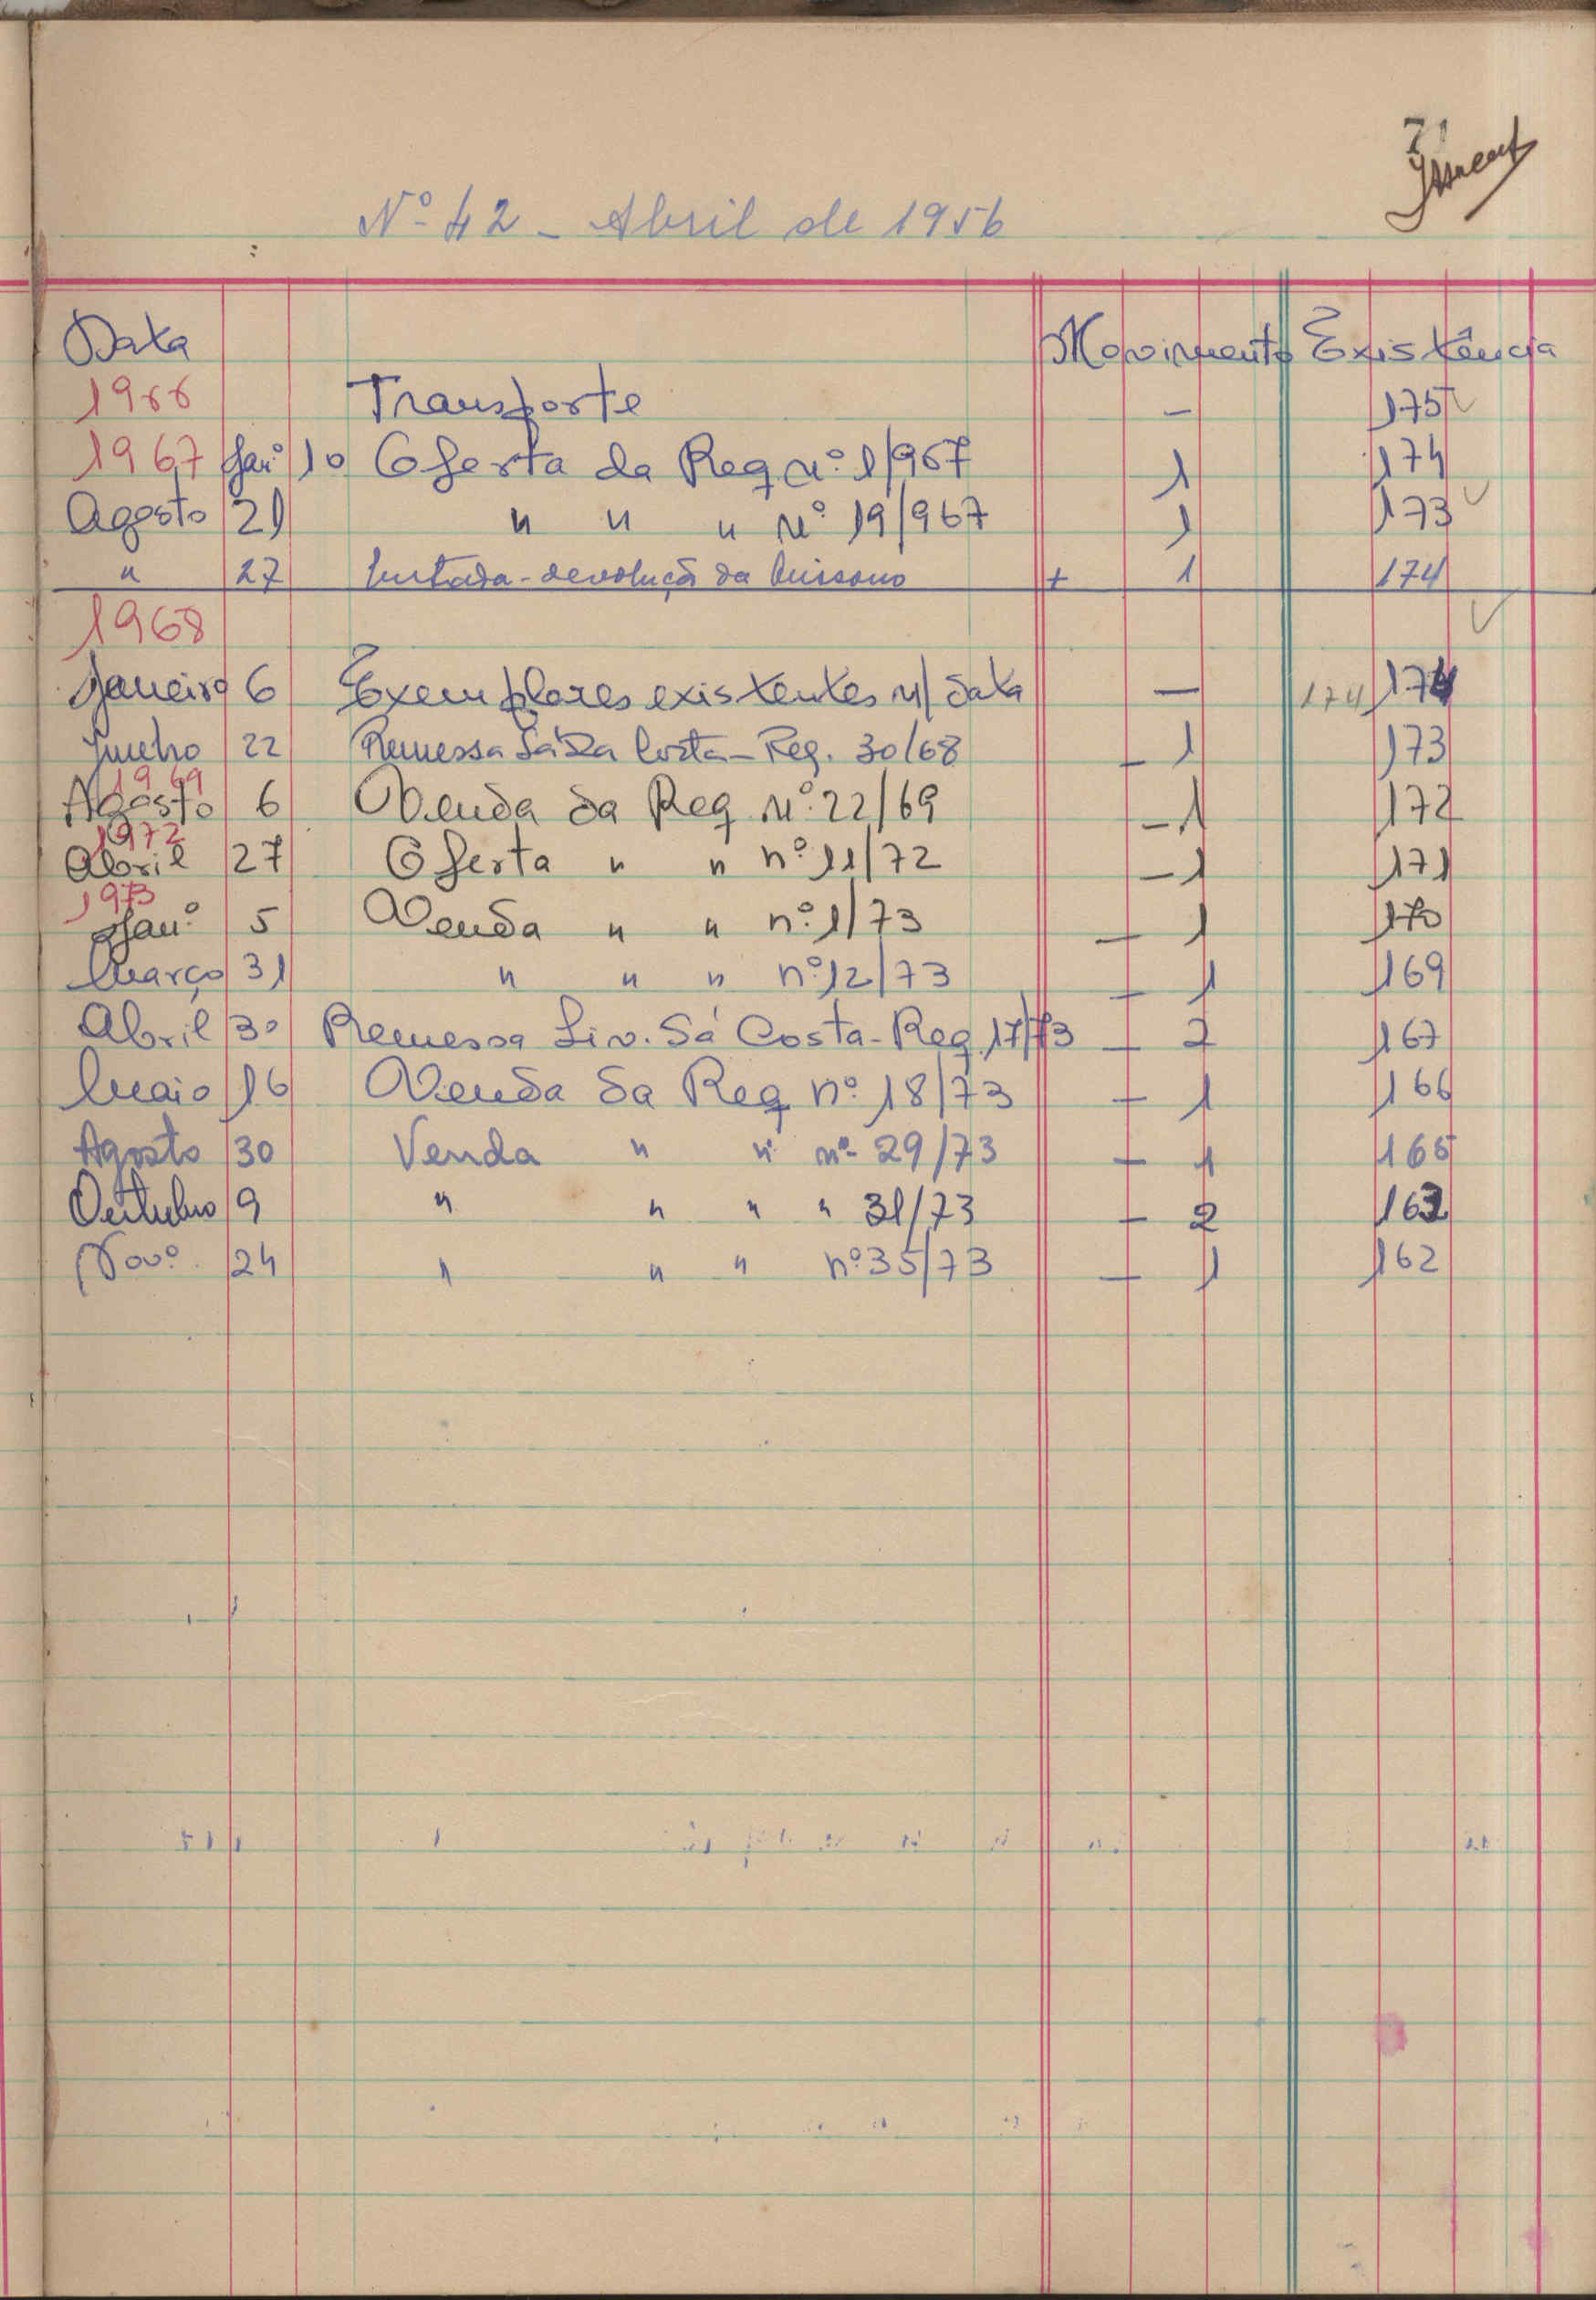 71
Nº 42 - Abril de 1956
Data Movimento Existência
1966 Transporte - 175
1967 Janº 10 Oferta da Req nº 1/967 1 174
Agosto 21 " " " nº 19/967 1 173
" 27 Entrada - devolução da + 1 174
1968
Janeiro 6 Exemplares existentes n/ data — 174 174
Junho 22 Remessa Sá da Costa - Req. 30/68 - 1 173
1969
Agosto 6 Venda da Req nº 22/69 - 1 172
1972
Abril 27 Oferta " " nº 11/72 - 1 171
1973
Janº 5 Venda " " nº 1/73 - 1 170
Março 31 " " " nº 12/73 - 1 169
Abril 30 Remessa Liv. Sá Costa - Req 17/73 - 2 167
Maio 16 Venda da Req nº 18/73 - 1 166
Agosto 30 Venda " " nº 29/73 - 1 165
Outubro 9 " " " " 31/73 - 2 163
Novº 24 " " " nº 35/73 - 1 162